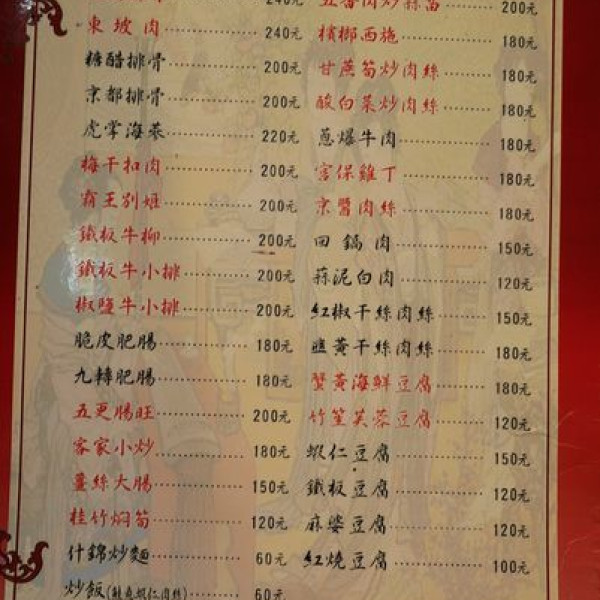 240元
東坡肉 240元
糖醋排骨 200元
京都排骨 200元
虎掌海蔘 220元
梅干扣肉 200元
霸王別姬 200元
鐵板牛柳 200元
鐵板牛小排 200元
椒鹽牛小排 200元
脆皮肥腸 180元
九轉肥腸 180元
五更腸旺 200元
客家小炒 180元
薑絲大腸 150元
桂竹焖筍 120元
什錦炒麵 60元
炒飯(蝦仁肉絲) 60元
五香肉炒蒜苗 200元
檳榔西施 180元
甘蔗筍炒肉絲 180元
酸白菜炒肉絲 180元
蔥爆牛肉 180元
宮保雞丁 180元
京醬肉絲 180元
回鍋肉 150元
蒜泥白肉 120元
紅椒干絲肉絲 150元
韮黃干絲肉絲 180元
蟹黃海鮮豆腐 180元
竹笙芙蓉豆腐 120元
蝦仁豆腐 150元
鐵板豆腐 120元
麻婆豆腐 120元
紅燒豆腐 100元